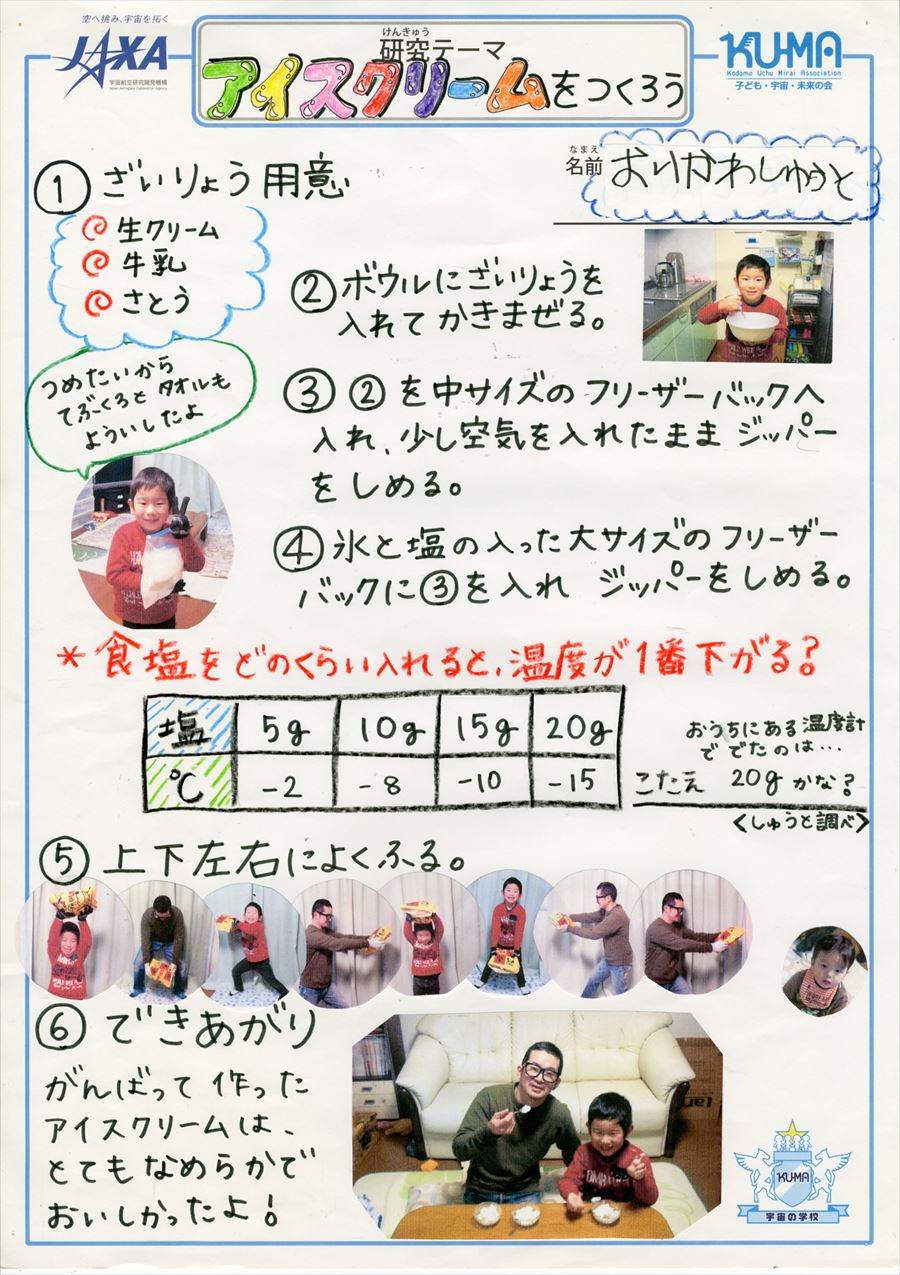 空へ挑み、宇宙を拓く
JAXA
宇宙航空研究開発機構
Japan Aerospace Exploration Agency
けんきゅう
研究テーマ
アイスクリームをつくろう
KU-MA
Kodomo Uchu Mirai Association
子ども・宇宙・未来の会
なまえ
名前 おりかわしゅうと
① ざいりょう用意
生クリーム
牛乳
さとう
② ボウルにざいりょうを
入れてかきまぜる。
つめたいから
てぶくろとタオルも
よういしたよ
③ ②を中サイズのフリーザーバックへ
入れ、少し空気を入れたまま ジッパー
をしめる。
④ 氷と塩の入った大サイズのフリーザー
バックに③を入れ ジッパーをしめる。
*食塩をどのくらい入れると、温度が1番下がる?
塩 5g 10g 15g 20g
℃ -2 -8 -10 -15
おうちにある温度計
ででたのは…
こたえ 20gかな?
<しゅうと調べ>
⑤ 上下左右によくふる。
⑥ できあがり
がんばって作った
アイスクリームは、
とてもなめらかで
おいしかったよ!
KU-MA
宇宙の学校